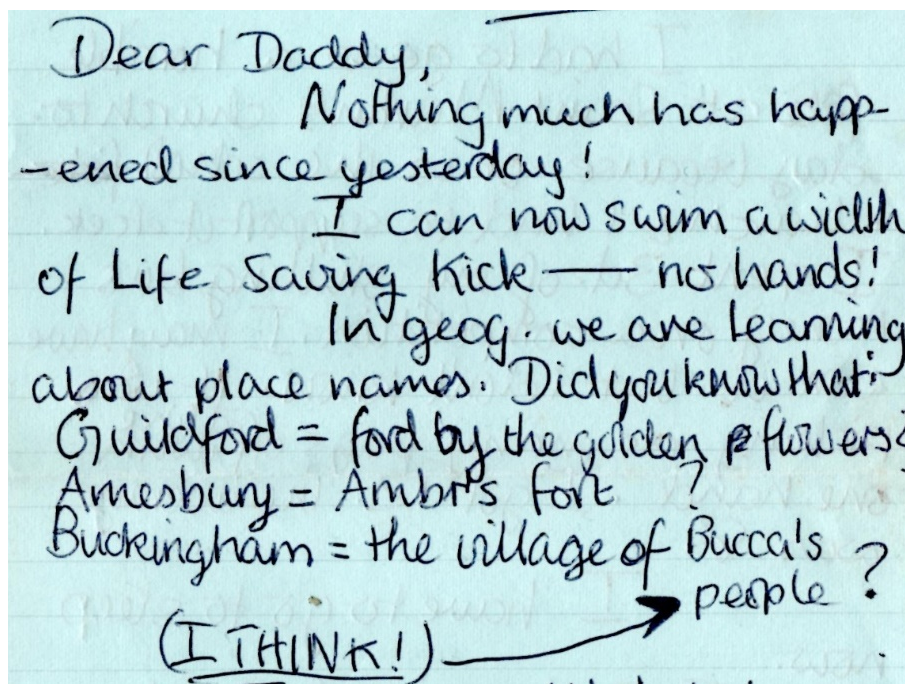 Dear Daddy,
Nothing much has happ-
-ened since yesterday!
I can now swim a width
of Life Saving Kick — no hands!
In geog. we are learning
about place names. Did you know that:
Guildford = ford by the golden flowers?
Amesbury = Ambr's fort ?
Buckingham = the village of Bucca's
people ?
(I THINK!)